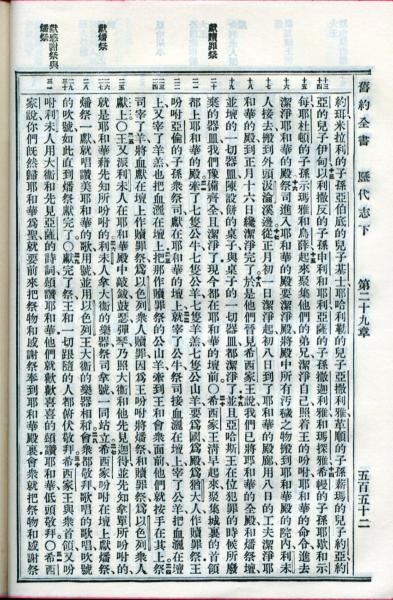 舊約全書 歷代志下 第二十九章 五百五十二
約珥米拉利的子孫亞伯底的兒子基士耶哈利勒的兒子亞撒利雅革順的子孫薪瑪的兒子約亞約
亞的兒子伊甸以利撒反的子孫申利和耶利亞薩的子孫撒迦利雅和瑪探雅希幔的子孫耶歇和示
每耶杜頓的子孫示瑪雅和烏薛起來聚集他們的弟兄潔淨自己照着王的吩咐耶和華的命令進去
潔淨耶和華的殿祭司進入耶和華的殿要潔淨殿將殿中所有汚穢之物搬到耶和華殿的院內利未
人接去搬到外頭汲淪溪邊從正月初一日潔淨起初八日到了耶和華的殿廊用八日的工夫潔淨耶
和華的殿到正月十六日纔潔淨完了於是他們晉見希西家王說我們已將耶和華的全殿和燔祭壇
並壇的一切器皿陳設餅的桌子與桌子的一切器皿都潔淨了並且亞哈斯王在位犯罪的時候所廢
獻贖罪祭
棄的器皿我們豫備齊全且潔淨了現今都在耶和華的壇前〇希西家王清早起來聚集城裏的首領
都上耶和華的殿牽了七隻公牛七隻公羊七隻羊羔七隻公山羊要爲國爲殿爲猶大人作贖罪祭王
吩咐亞倫的子孫衆祭司獻在耶和華的壇上就宰了公牛祭司接血灑在壇上宰了公羊把血灑在壇
上又宰了羊羔也把血灑在壇上把那作贖罪祭的公山羊牽到王和會衆面前他們就按手在其上祭
司宰了羊將血獻在壇上作贖罪祭爲以色列衆人贖罪因爲王吩咐將燔祭和贖罪祭爲以色列衆人
獻上〇王又派利未人在耶和華殿中敲鈸鼓瑟彈琴乃照大衞和他先見迦得並先知拿單所吩咐的
獻燔祭
就是耶和華藉先知所吩咐的利未人拿大衞的樂器祭司拿號一同站立希西家吩咐在壇上獻燔祭
燔祭一獻就唱讚美耶和華的歌用號並用以色列王大衞的樂器相和會衆都敬拜歌唱的歌唱吹號
的吹號如此直到燔祭獻完了〇獻完了祭王和一切跟隨的人都俯伏敬拜希西家王與衆首領又吩
咐利未人用大衞和先見亞薩的詩詞頌讚耶和華他們就歡歡喜喜的頌讚耶和華低頭敬拜〇希西
獻感謝祭與
燔祭
家說你們旣然歸耶和華爲聖就要前來把祭物和感謝祭奉到耶和華殿裏會衆就把祭物和感謝祭